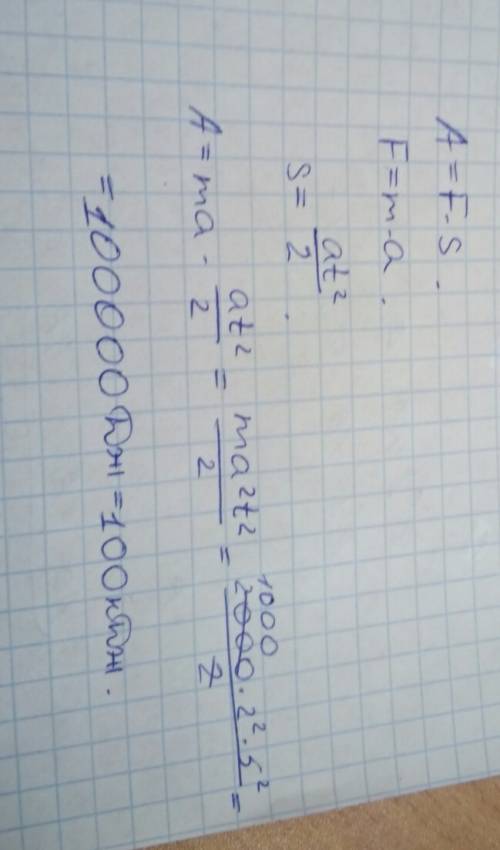 A = F · S .
F = m · a .
S = at²/2 .
A = ma · at²/2 = ma²t²/2 = 1000 2000 · 2² · 5²/2 =
= 100000 Дж = 100 кДж .